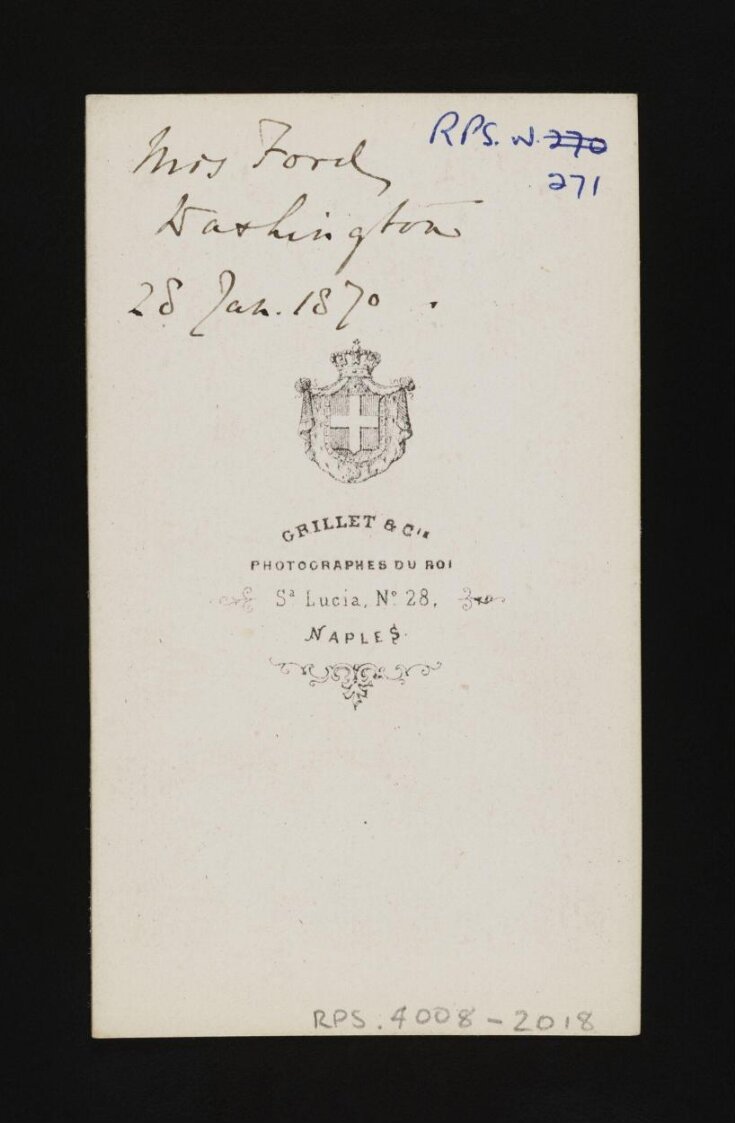 Mrs Ford,
Washington
28 Jan. 1870.
RPS. N. 270
271
GRILLET & Cie
PHOTOGRAPHES DU ROI
Sa Lucia, No 28,
NAPLES.
RPS. 4008-2018